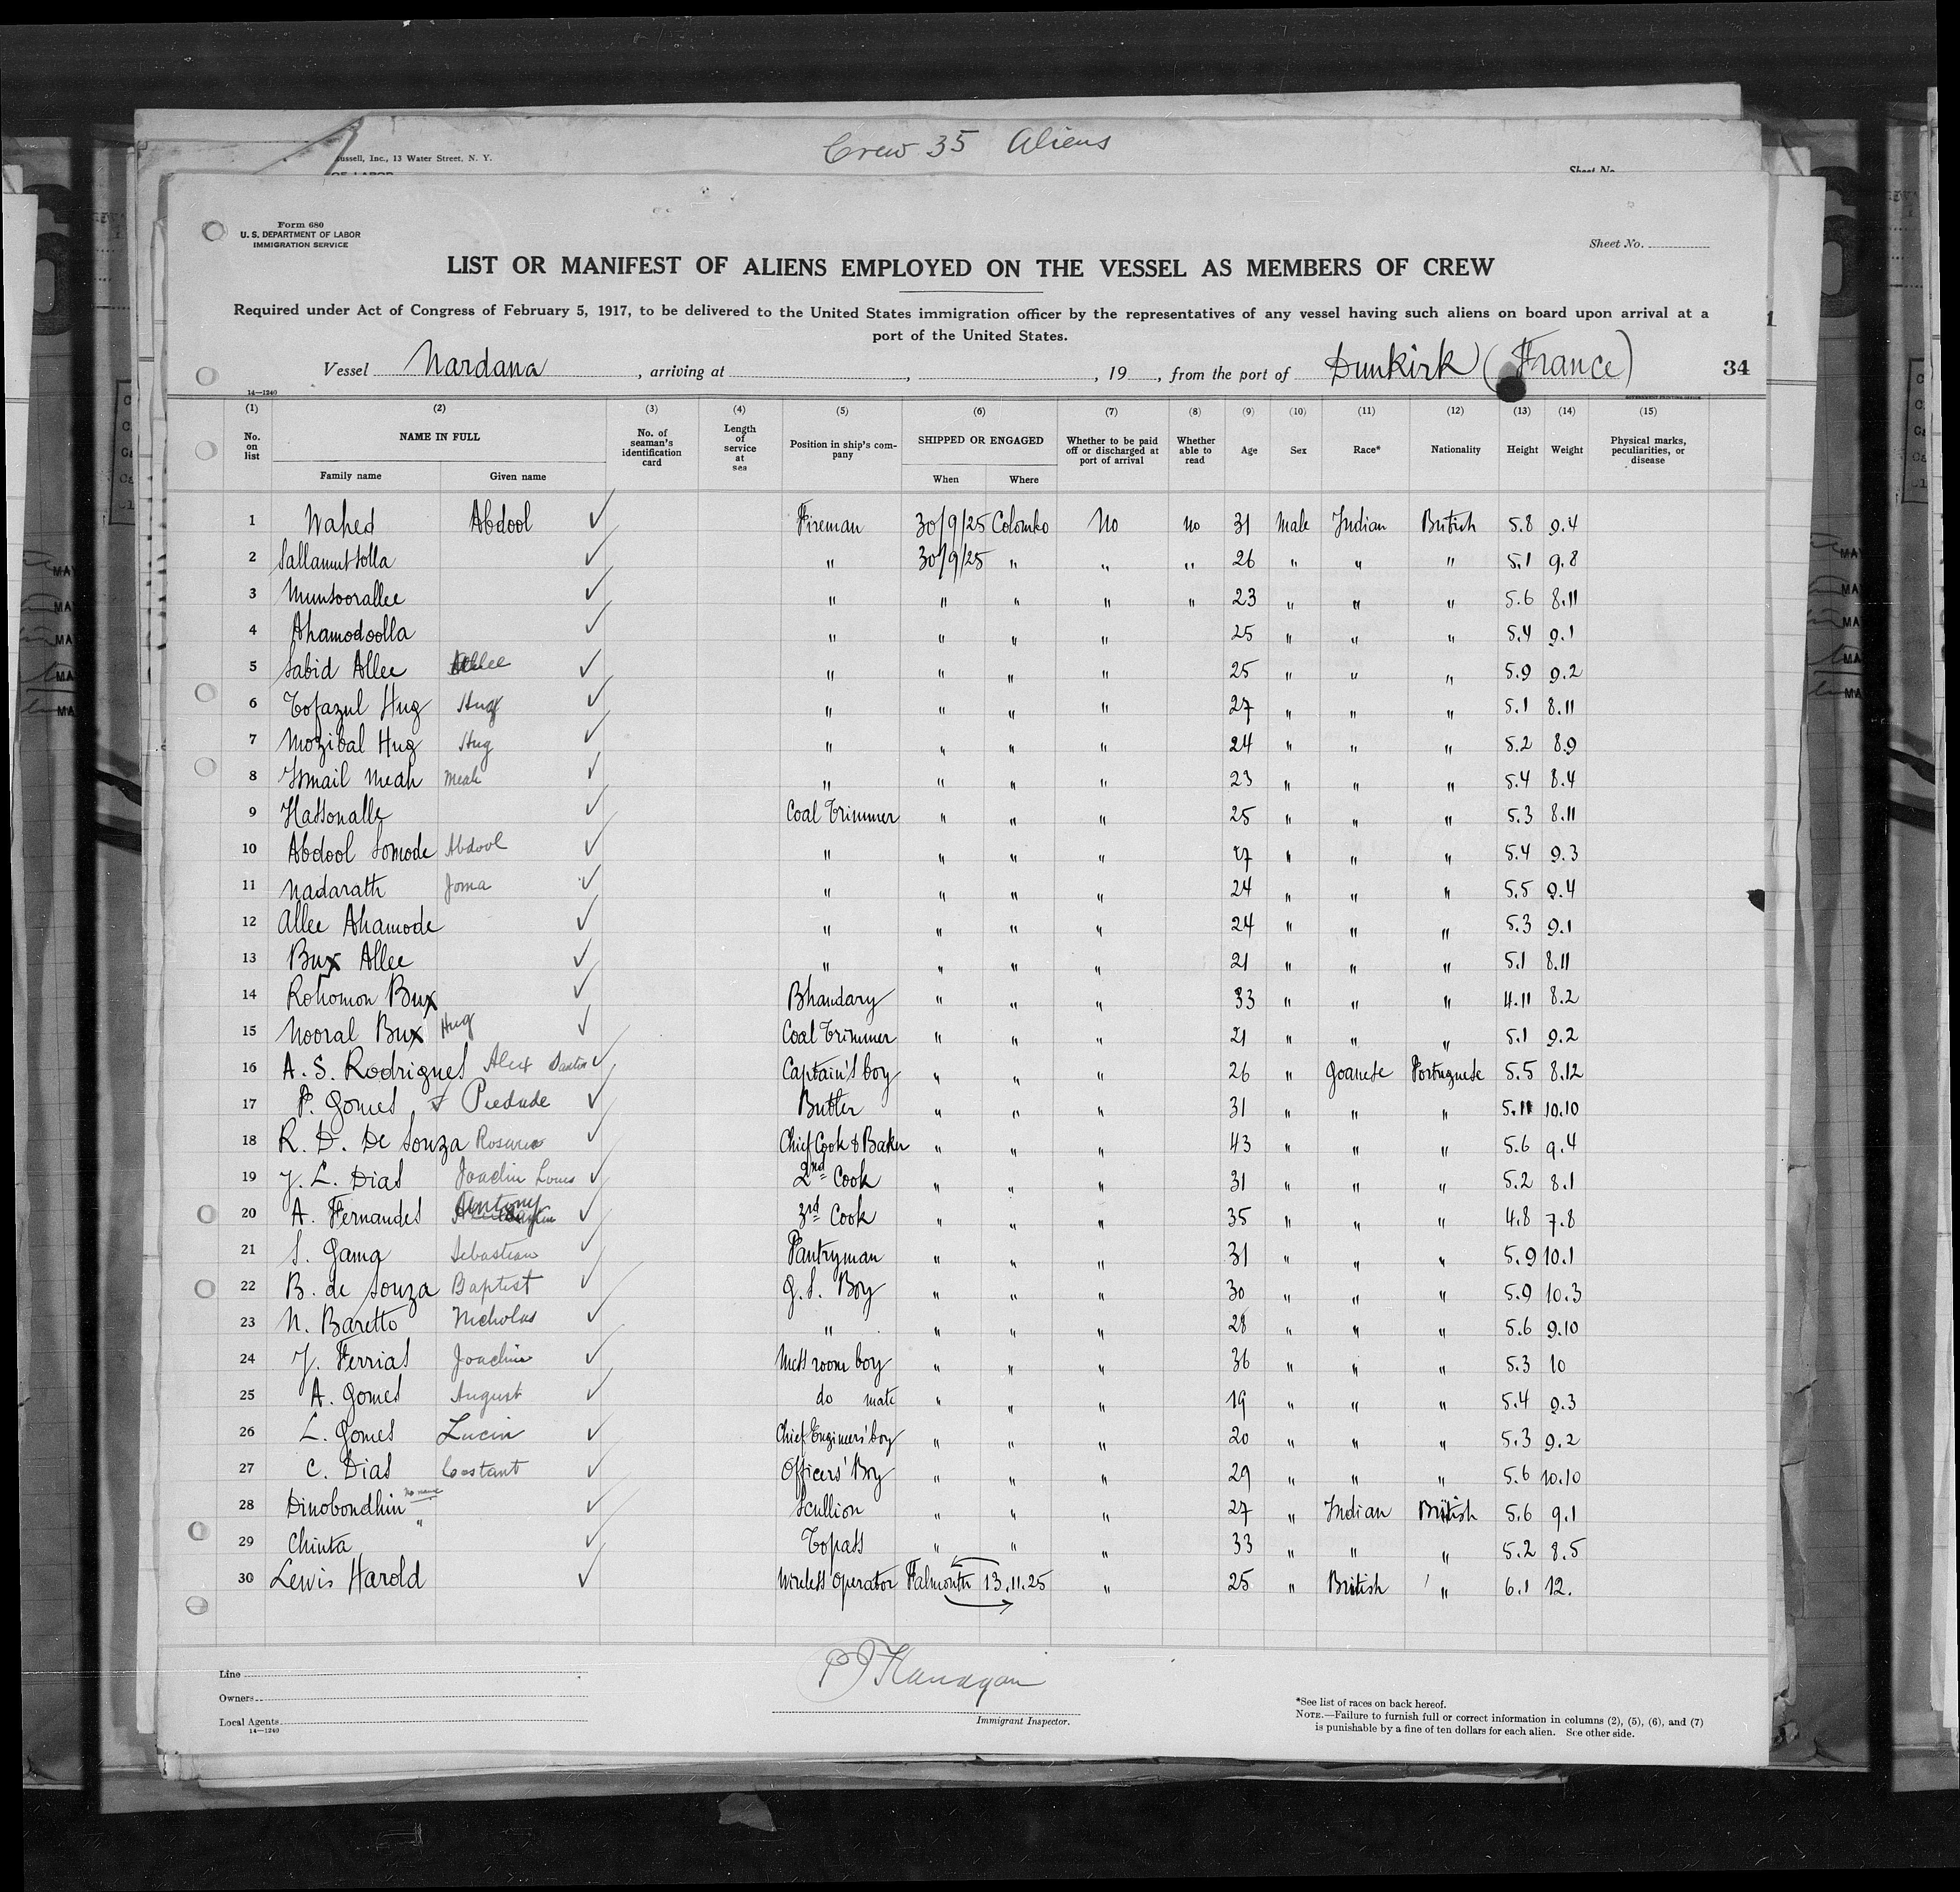 Crew 35 Aliens
Russell, Inc., 13 Water Street, N. Y.
OF LABOR
Sheet No.
Form 680
U. S. DEPARTMENT OF LABOR
IMMIGRATION SERVICE
Sheet No.
LIST OR MANIFEST OF ALIENS EMPLOYED ON THE VESSEL AS MEMBERS OF CREW
Required under Act of Congress of February 5, 1917, to be delivered to the United States immigration officer by the representatives of any vessel having such aliens on board upon arrival at a
port of the United States.
Vessel Nardana, arriving at , , 19 , from the port of Dunkirk (France) 34
14—1240
(1) (2) (3) (4) (5) (6) (7) (8) (9) (10) (11) (12) (13) (14) (15)
No. on list NAME IN FULL Family name Given name No. of seaman's identification card Length of service at sea Position in ship's company SHIPPED OR ENGAGED When Where Whether to be paid off or discharged at port of arrival Whether able to read Age Sex Race* Nationality Height Weight Physical marks, peculiarities, or disease
1 Wahed Abdool ✓ Fireman 30/9/25 Colombo No No 31 Male Indian British 5.8 9.4
2 Sallamutsolla ✓ " 30/9/25 " " " 26 " " " 5.1 9.8
3 Munsoorallee ✓ " " " " " 23 " " " 5.6 8.11
4 Ahamodoolla ✓ " " " " 25 " " " 5.4 9.1
5 Sabid Allee Allee ✓ " " " " 25 " " " 5.9 9.2
6 Tofazul Hug Hug ✓ " " " " 27 " " " 5.1 8.11
7 Mozibal Hug Hug ✓ " " " " 24 " " " 5.2 8.9
8 Ismail Meah Meah ✓ " " " " 23 " " " 5.4 8.4
9 Hassonalle ✓ Coal Trimmer " " " 25 " " " 5.3 8.11
10 Abdool Somode Abdool ✓ " " " " 27 " " " 5.4 9.3
11 Nadarath Joma ✓ " " " " 24 " " " 5.5 9.4
12 Allee Ahamode ✓ " " " " 24 " " " 5.3 9.1
13 Bux Allee ✓ " " " " 21 " " " 5.1 8.11
14 Rohomon Bux ✓ Bhandary " " " 33 " " " 4.11 8.2
15 Nooral Bux Hug ✓ Coal Trimmer " " " 21 " " " 5.1 9.2
16 A. S. Rodrigues Alex ✓ Captain's boy " " " 26 " Goanese Portuguese 5.5 8.12
17 P. Gomes ✓ Piedade ✓ Butler " " " 31 " " " 5.11 10.10
18 R. D. De Souza Rosario ✓ Chief Cook & Baker " " " 43 " " " 5.6 9.4
19 J. L. Dias Joachin Louis ✓ 2nd Cook " " " 31 " " " 5.2 8.1
20 A. Fernandes Antony ✓ 3rd Cook " " " 35 " " " 4.8 7.8
21 S. Gama Sebastian ✓ Pantryman " " " 31 " " " 5.9 10.1
22 B. de Souza Baptist ✓ G. S. Boy " " " 30 " " " 5.9 10.3
23 N. Baretto Nicholas ✓ " " " " 28 " " " 5.6 9.10
24 J. Ferrias Joachin ✓ Mess room boy " " " 36 " " " 5.3 10
25 A. Gomes August ✓ do mate " " " 19 " " " 5.4 9.3
26 L. Gomes Lucin ✓ Chief Engineers' boy " " " 20 " " " 5.3 9.2
27 C. Dias Costant ✓ Officers' Boy " " " 29 " " " 5.6 10.10
28 Dinobondhin no name ✓ Scullion " " " 27 " Indian British 5.6 9.1
29 Chinta " ✓ Topass " " " 33 " " " 5.2 8.5
30 Lewis Harold ✓ Wireless Operator Falmouth 13.11.25 " 25 " British " 6.1 12.
P J Flanagan
Immigrant Inspector.
Line
Owners
Local Agents
14—1240
*See list of races on back hereof.
NOTE.—Failure to furnish full or correct information in columns (2), (5), (6), and (7)
is punishable by a fine of ten dollars for each alien. See other side.